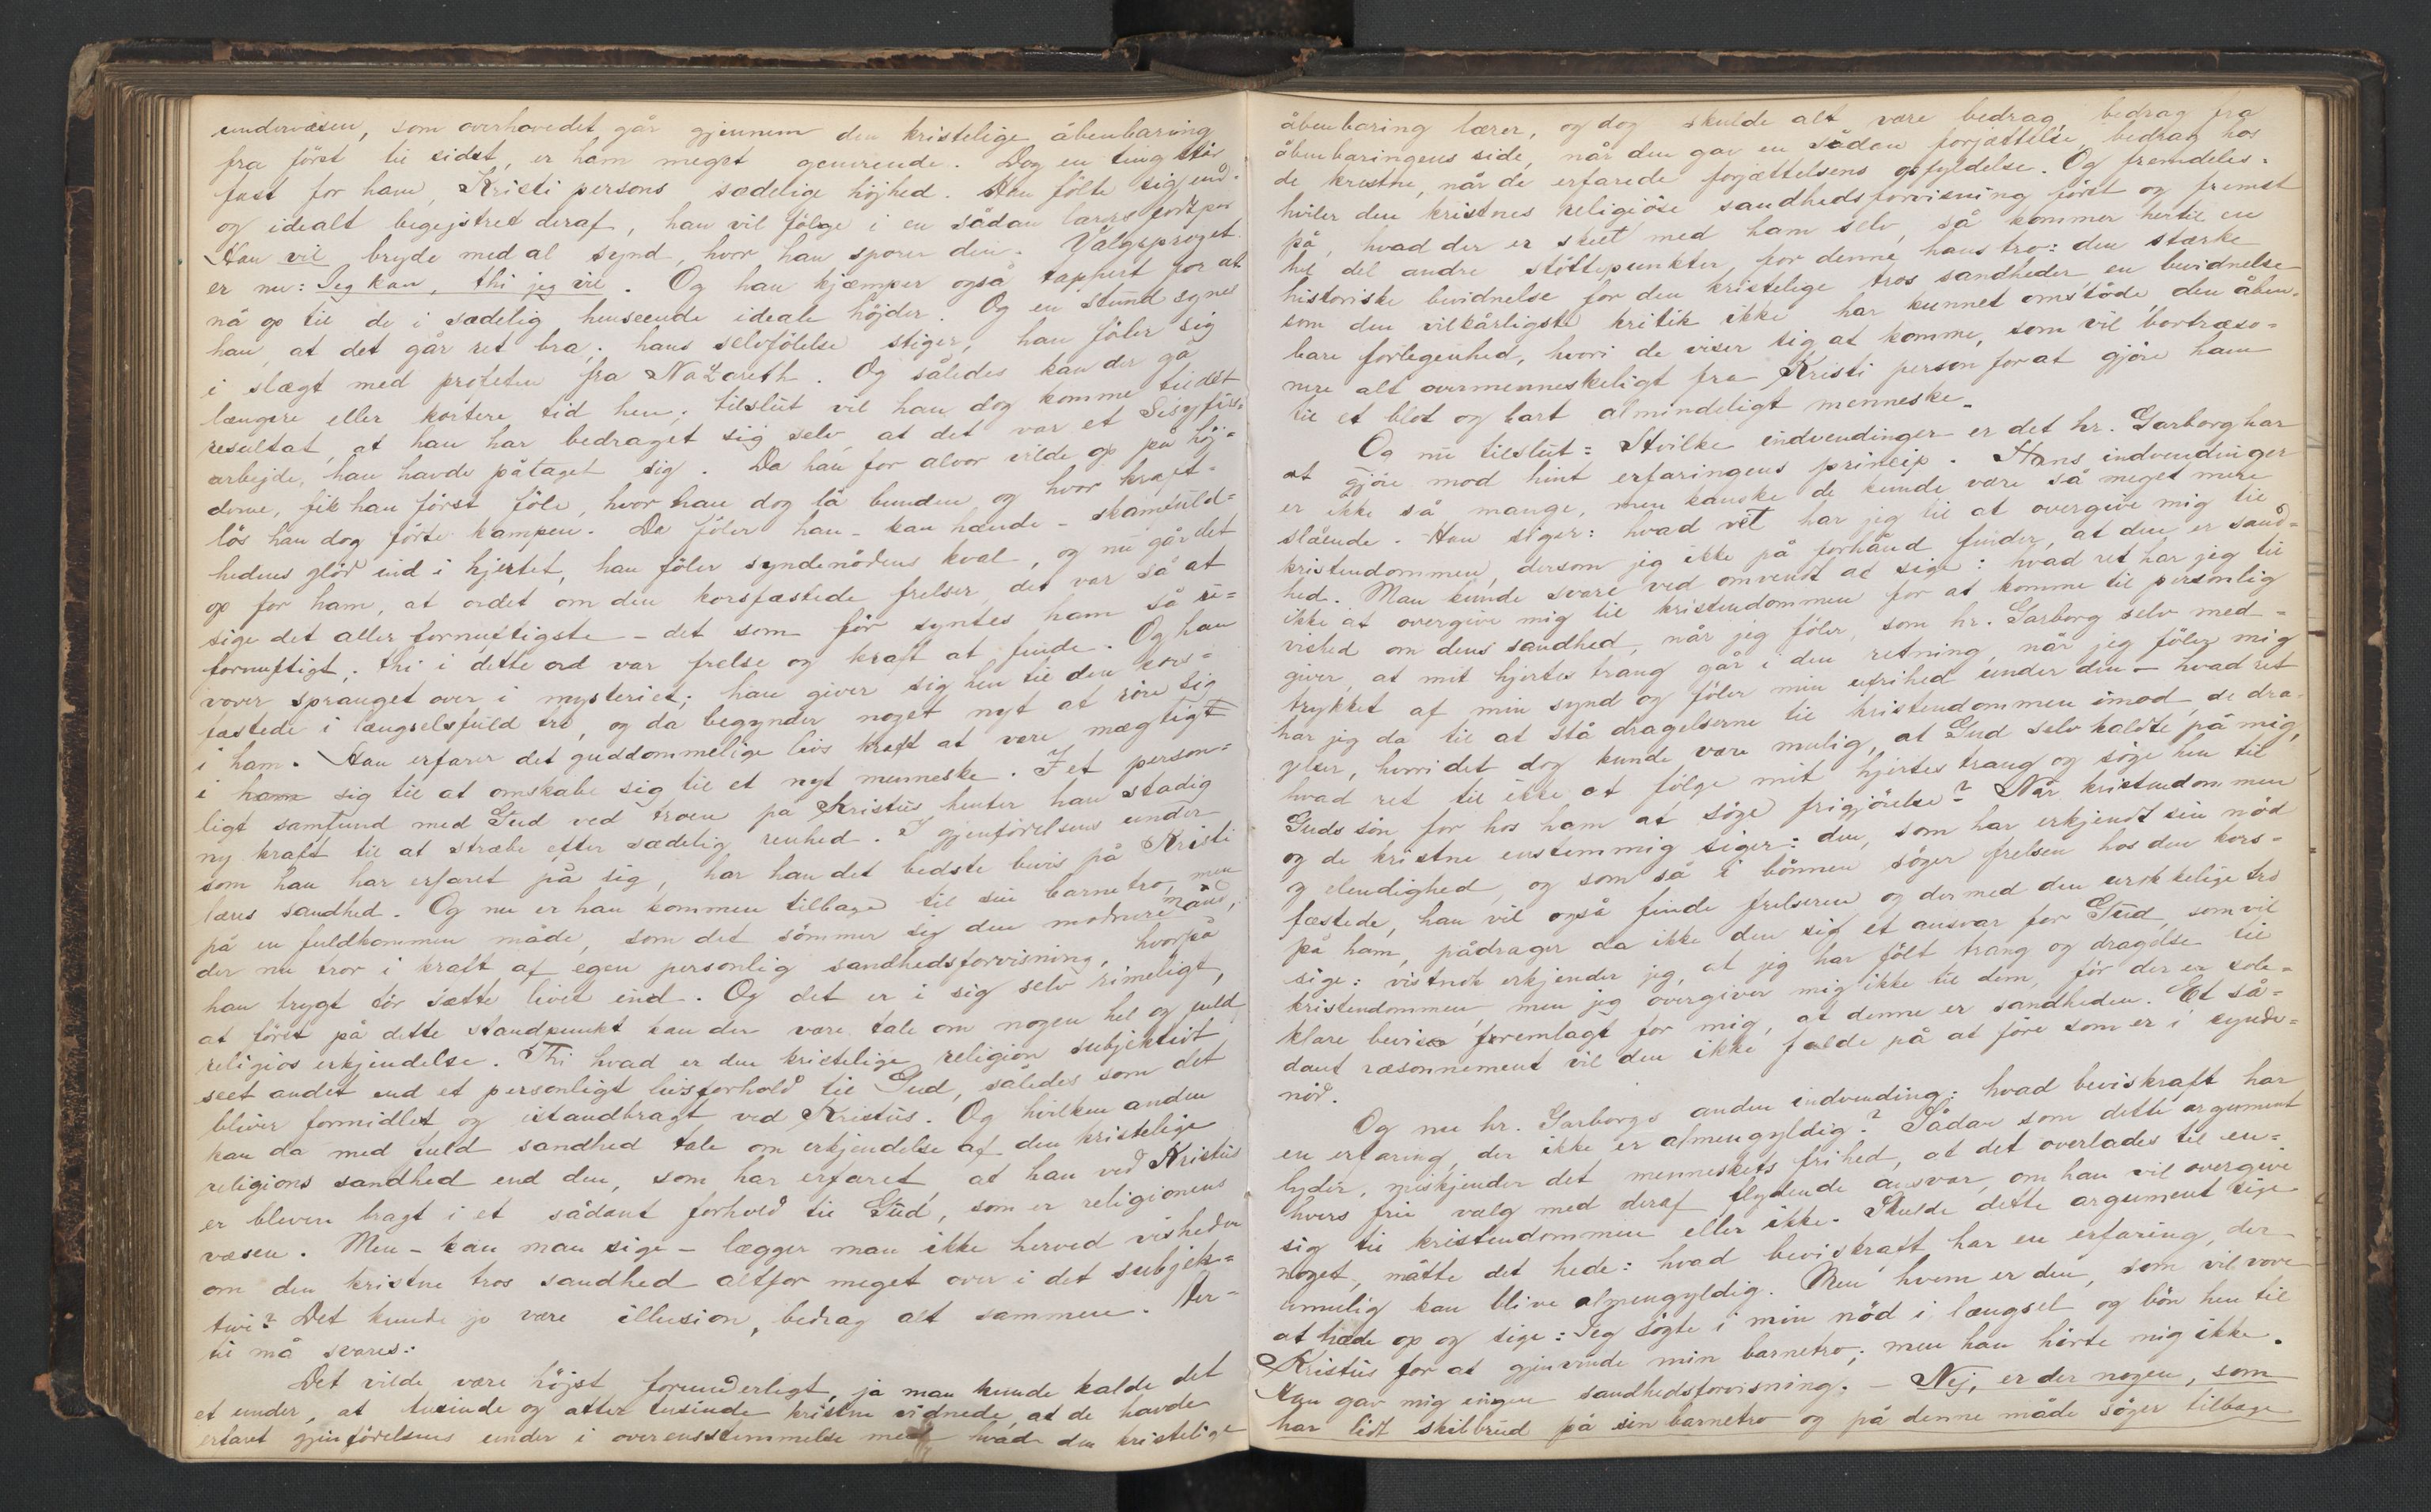 undervæsen, som overhovedet går gjennem den kristelige åbenbaring
fra först til sidst, er ham meget generende. Dog en ting står
fast for ham, Kristi persons sædelige höjhed. Han fölte sig
og idealt begejstret deraf, han vil fölge i en sådan lærers fodspor
Han vil bryde med al synd, hvor han sporer den. Valgsproget
er nu: Jeg kan, thi jeg vil. Og han kjæmper også tappert for at
nå op til de i sædelig henseende ideale höjder. Og en stund synes
han, at det går ret bra; hans selvfölelse stiger, han föler sig
i slægt med profeten fra Nazareth. Og således kan der gå
længere eller kortere tid hen; tilslut vil han dog komme til det
resultat, at han har bedraget sig selv, at det var et Sisyfus-
arbejde, han havde påtaget sig. Da han for alvor vilde op på höj-
derne, fik han först föle, hvor han dog lå bunden og hvor kraft-
lös han dog förte kampen. Da föler han - kan hænde - skamfuld-
hedens glöd ind i hjertet, han föler syndenödens kval, og nu går det
op for ham, at ordet om den korsfæstede frelser, det var så at
sige det aller fornuftigste - det som för syntes ham så u-
fornuftigt; thi i dette ord var frelse og kraft at finde. Og han
vover spranget over i mysteriet; han giver sig hen til den kors-
fæstede i længselsfuld tro, og da begynder noget nyt at röre sig
i ham. Han erfarer det guddommelige livs kraft at være mægtigt
i ham sig til at omskabe sig til et nyt menneske. I et person-
ligt samfund med Gud ved troen på Kristus henter han stadig
ny kraft til at stræbe efter sædelig renhed. I gjenfödelsens under
som han har erfaret på sig, har han det bedste bevis på Kristi
læres sandhed. Og nu er han kommen tilbage til sin barnetro, men
på en fuldkommen måde, som det sömmer sig den modnere ånd,
der nu tror i kraft af egen personlig sandhedsforvisning, hvorpå
han trygt tör sætte livet ind. Og det er i sig selv rimeligt,
at först på dette standpunkt kan der være tale om nogen hel og fuld
religiøs erkjendelse. Thi hvad er den kristelige religion subjektivt
seet andet end et personligt livsforhold til Gud, således som det
bliver formidlet og istandbragt ved Kristus. Og hvilken anden
kan da med fuld sandhed tale om erkjendelse af den kristelige
religions sandhed end den, som har erfaret at han ved Kristus
er bleven bragt i et sådant forhold til Gud, som er religionens
væsen. Men - kan man sige - lægger man ikke herved visheden
om den kristne tros sandhed altfor meget over i det subjek-
tive? Det kunde jo være illusion, bedrag alt sammen. Her-
til må svares:
Det vilde være höjst forunderligt, ja man kunde kalde det
et under, at tusinde og atter tusinde kristne vidnede, at de havde
erfaret gjenfödelsens under i overensstemmelse med hvad den kristelige
åbenbaring lærer, og dog skulde alt være bedrag, bedrag fra
åbenbaringens side, når den gav en sådan forjættelse, bedrag hos
de kristne, når de erfarede forjættelsens opfyldelse. Og fremdeles:
hviler den kristnes religiöse sandhedsforvisning först og fremst
på, hvad der er skeet med ham selv, så kommer hertil en
hel del andre stöttepunkter for denne hans tro: den stærke
historiske bevidnelse for den kristelige tros sandheder, en bevidnelse
som den vilkårligste kritik ikke har kunnet omstöde, den åben-
bare forlegenhed, hvori de viser sig at komme, som vil bortræso-
nere alt overmenneskeligt fra Kristi person for at gjöre ham
til et blot og bart almindeligt menneske.
Og nu tilslut: Hvilke indvendinger er det hr. Garborg har
at gjöre mod hint erfaringens princip. Hans indvendinger
er ikke så mange, men kanske de kunde være så meget mere
slående. Han siger: hvad ret har jeg til at overgive mig til
kristendommen, dersom jeg ikke på forhånd finder, at den er sand-
hed. Man kunde svare ved omvendt at sige: hvad ret har jeg til
ikke at overgive mig til kristendommen for at komme til personlig
vished om dens sandhed, når jeg föler, som hr. Garborg selv med-
giver, at mit hjertes trang går i den retning, når jeg föler mig
trykket af min synd og föler min ufrihed under den - hvad ret
har jeg da til at stå dragelserne til kristendommen imod, de dra-
gelser, hvori det dog kunde være mulig, at Gud selv kaldte på mig,
hvad ret til ikke at fölge mit hjertes trang og söge hen til
Guds sön for hos ham at söge frigjörelse? Når kristendommen
og de kristne enstemmig siger: den, som har erkjendt sin nöd
og elendighed, og som så i bönnen söger frelsen hos den kors-
fæstede, han vil også finde frelseren og dermed den urokkelige tro
på ham, pådrager da ikke den sig et ansvar for Gud, som vil
sige: vistnok erkjender jeg, at jeg har fölt trang og dragelse til
kristendommen, men jeg overgiver mig ikke til dem, för der er sole-
klare beviser fremlagt for mig, at denne er sandheden. Et så-
dant ræsonnement vil den ikke falde på at före som er i synde-
nöd.
Og nu hr. Garborgs anden indvending: hvad beviskraft har
en erfaring, der ikke er almengyldig? Sådan som dette argument
lyder, miskjender det menneskets frihed, at det overlades til en-
hvers frie valg med deraf flydende ansvar, om han vil overgive
sig til kristendommen eller ikke. Skulde dette argument sige
noget, måtte det hede: hvad beviskraft har en erfaring, der
umulig kan blive almengyldig. Men hvem er den, som vil vove
at træde op og sige: Jeg sögte i min nöd i længsel og bön hen til
Kristus for at gjenvinde min barnetro; men han hörte mig ikke.
Han gav mig ingen sandhedsforvisning. - Nej, er der nogen, som
har lidt skibbrud på sin barnetro og på denne måde söger tilbage